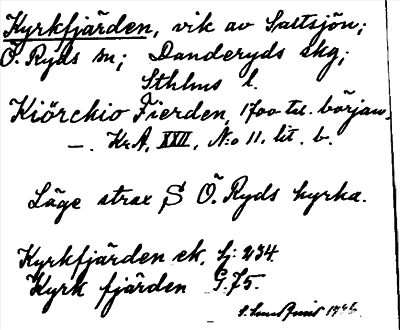 Kyrkfjärden, vik av Saltsjön;
Ö. Ryds sn; Danderyds skg;
Sthlms l.
Kiörckio Fierden, 1700 tal. början.
—. Kr.A, XXII, N:o 11. lit. b.
Läge strax S Ö. Ryds kyrka.
Kyrkfjärden ek. bj: 234.
Kyrk fjärden G.75.